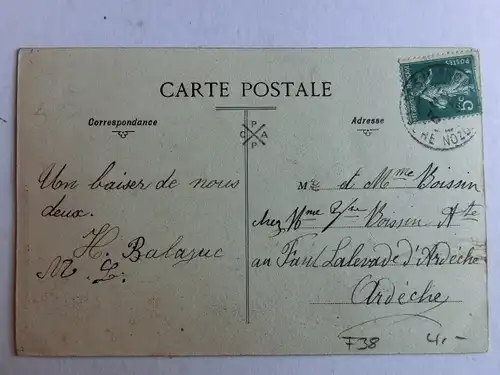 CARTE POSTALE
Correspondance
Adresse
C P A P
POSTES
5
Un baiser de nous
deux.
H. Balazuc
M. L.
M et Mme Boissin
chez Mme Vve Boissin Ate
au Pont Lalevade d'Ardèche
Ardèche
F38
4,-